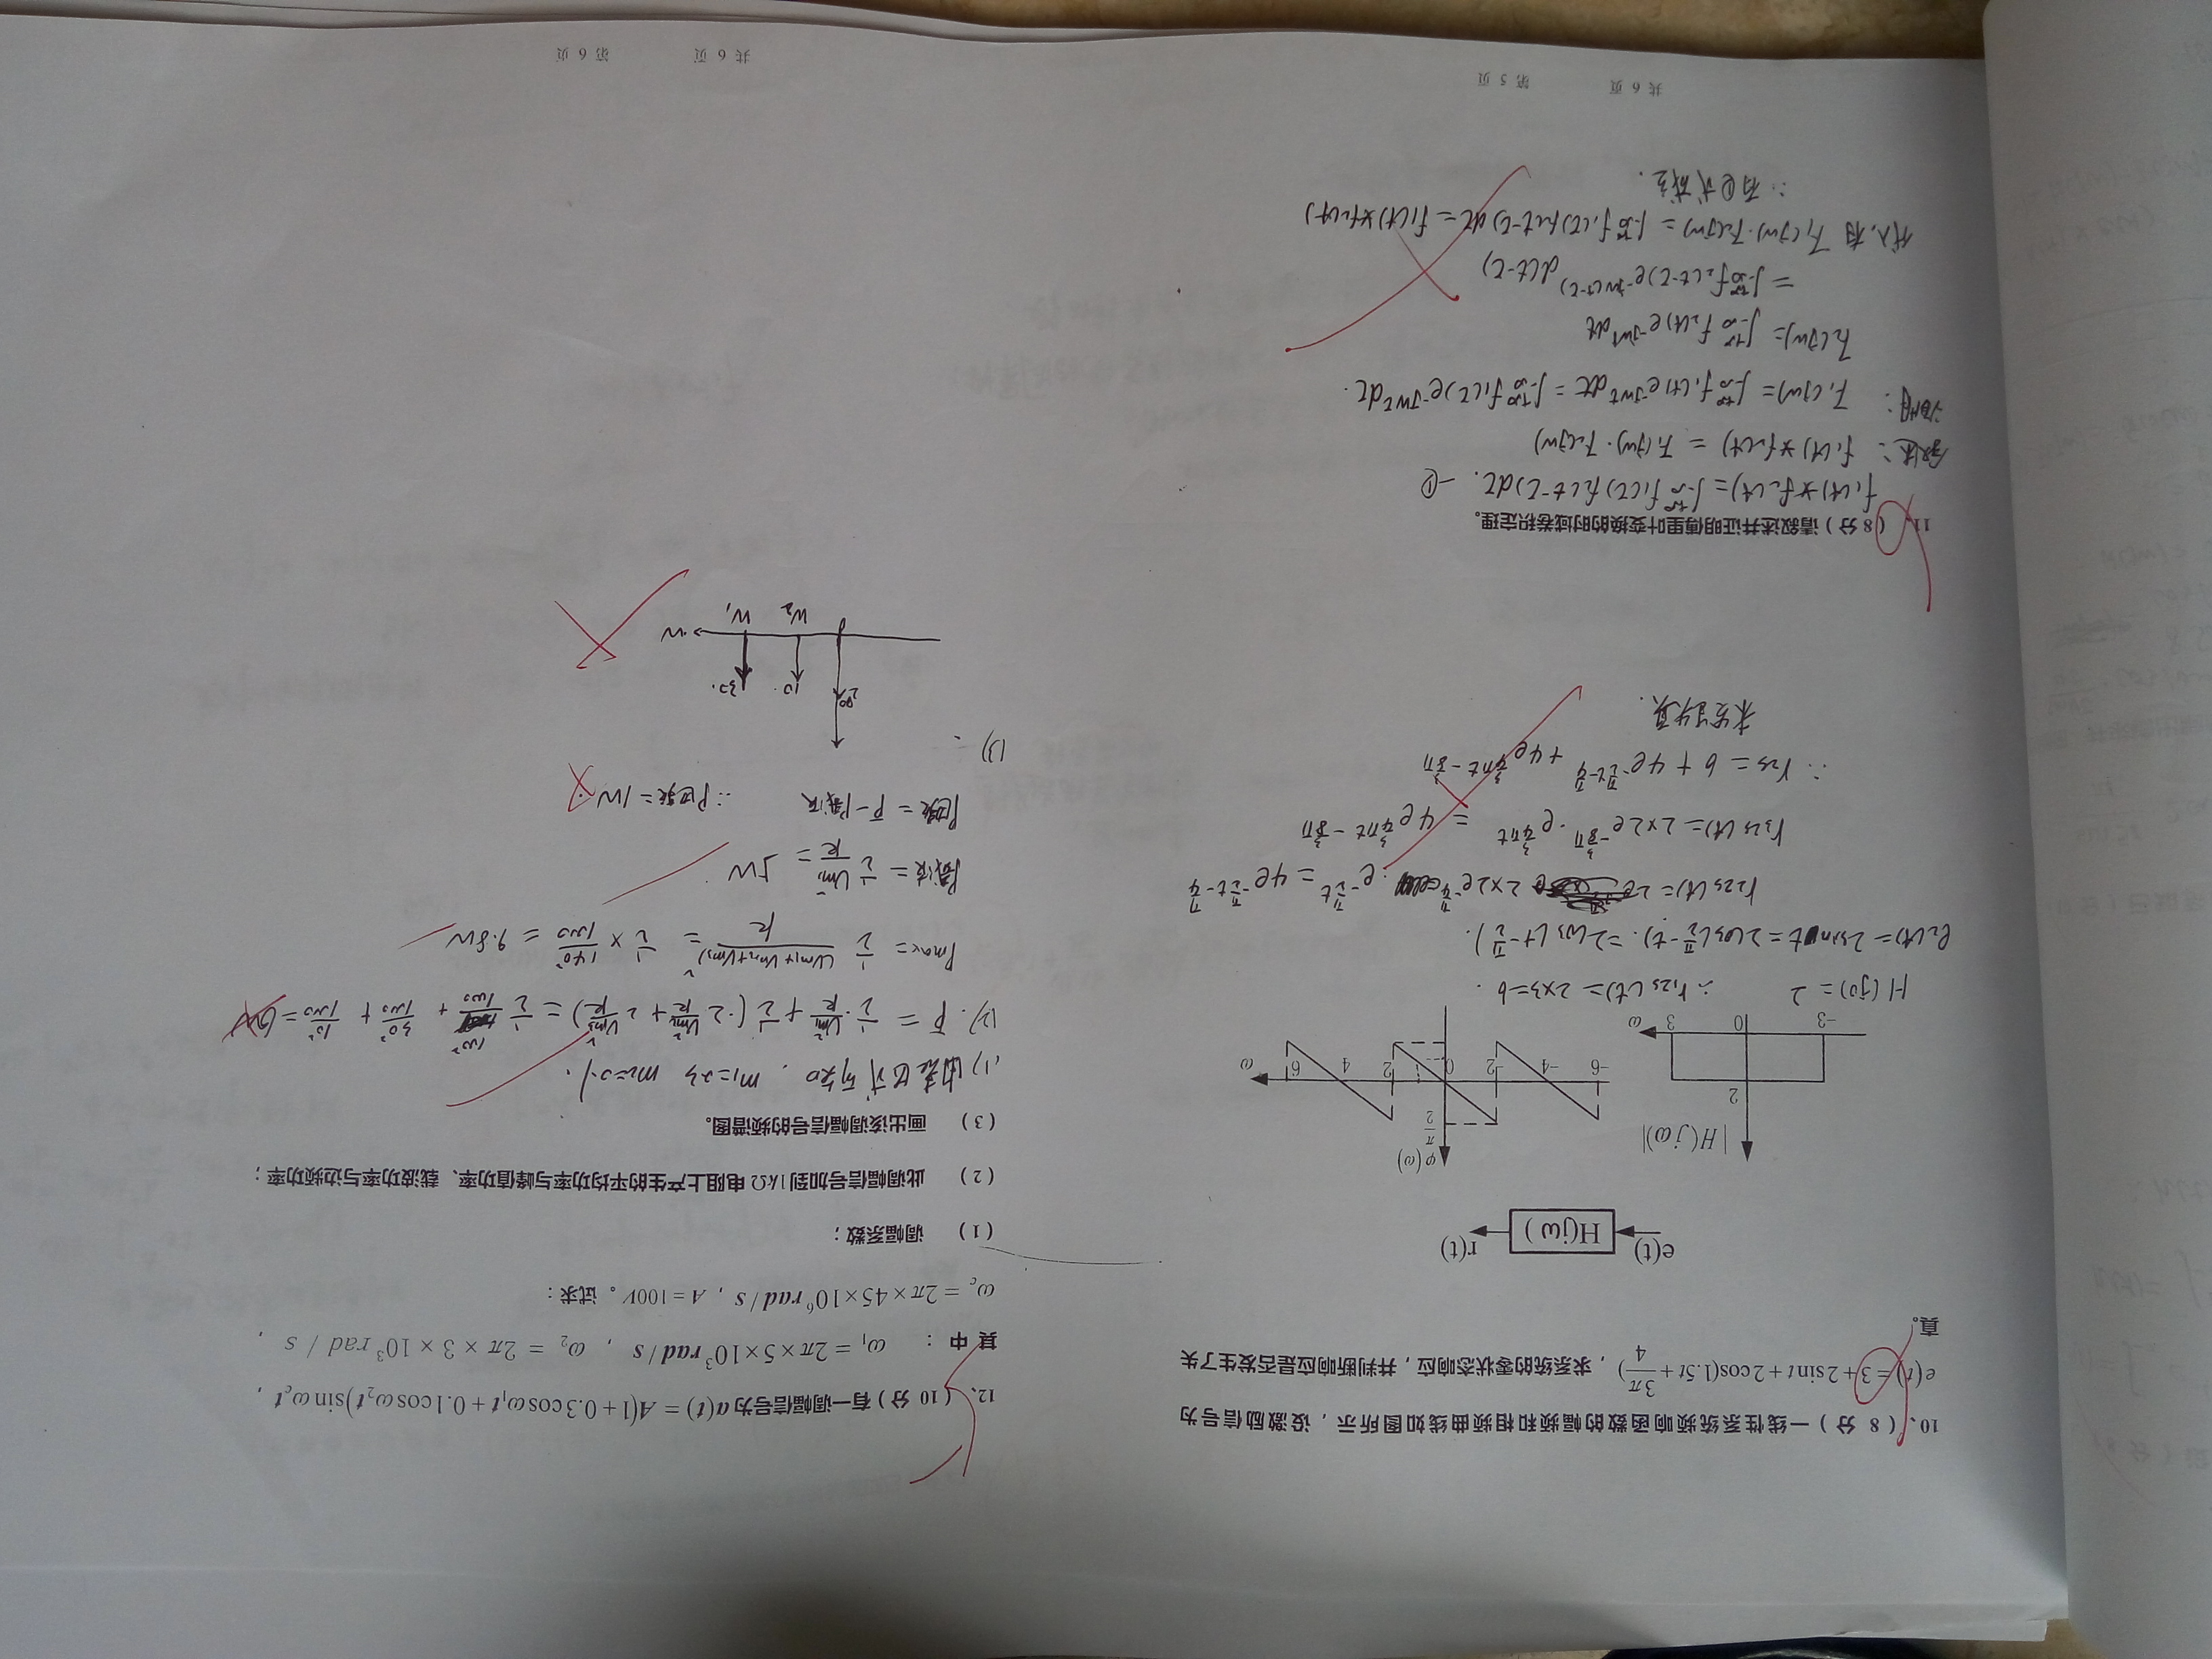 10、( 8 分 ) 一线性系统频响函数的幅频和相频曲线如图所示，设激励信号为
e(t)=3+2sint+2cos(1.5t+3π/4)，求系统的零状态响应，并判断响应是否发生了失
真。
e(t) H(jω) r(t)
|H(jω)|
2
-3 0 3 ω
φ(ω)
π/2
-6 -4 -2 0 2 4 6 ω
H(j0)=2 ∴r1zs(t)=2×3=6.
e2(t)=2sint=2cos(π/2-t).=2cos(t-π/2).
r2zs(t)= 2×2e^-π/4 · e^-π/2t = 4e^-π/2t-π/4
r3zs(t)=2×2e^-3/8π·e^3/4πt = 4e^3/4πt-3/8π
∴ rzs=6+4e^-π/2t-π/4+4e^3/4πt-3/8π
未发生失真.
11、( 8 分 ) 请叙述并证明傅里叶变换的时域卷积定理。
f1(t)*f2(t)=∫-∞^+∞ f1(τ)f2(t-τ)dτ. —①
叙述: f1(t)*f2(t) = F1(jw)·F2(jw)
证明: F1(jw)=∫-∞^+∞ f1(t)e^-jwt dt=∫-∞^+∞ f1(τ)e^-jwτ dτ.
F2(jw)=∫-∞^+∞ f2(t)e^-jwt dt
=∫-∞^+∞ f2(t-τ)e^-jw(t-τ) d(t-τ)
代入,有 F1(jw)·F2(jw)=∫-∞^+∞ f1(τ)f2(t-τ)dτ=f1(t)*f2(t)
∴ 有①式成立.
共 6 页 第 5 页
12、( 10 分 ) 有一调幅信号为 a(t)=A(1+0.3cosω₁t+0.1cosω₂t)sinω_c t，
其中： ω₁=2π×5×10³rad/s，ω₂=2π×3×10³rad/s，
ω_c=2π×45×10⁶rad/s，A=100V。试求：
(1) 调幅系数；
(2) 此调幅信号加到1kΩ电阻上产生的平均功率与峰值功率、载波功率与边频功率；
(3) 画出该调幅信号的频谱图。
(1)由表达式可知, m1=0.3 m2=0.1.
(2). P̄ = 1/2·Um1²/R+1/2(·2Um2²/R+2Um3²/R)=1/2 100²/1000+30²/1000+10²/1000=6W
Pmax=1/2 (Um1+Um2+Um3)²/R = 1/2×140²/1000=9.8W
P载波=1/2 Um1²/R=5W
P边频=P̄-P载波 ∴P边频=1W.
(3).
200 10. 30.
0 W2 W1 W
共 6 页 第 6 页